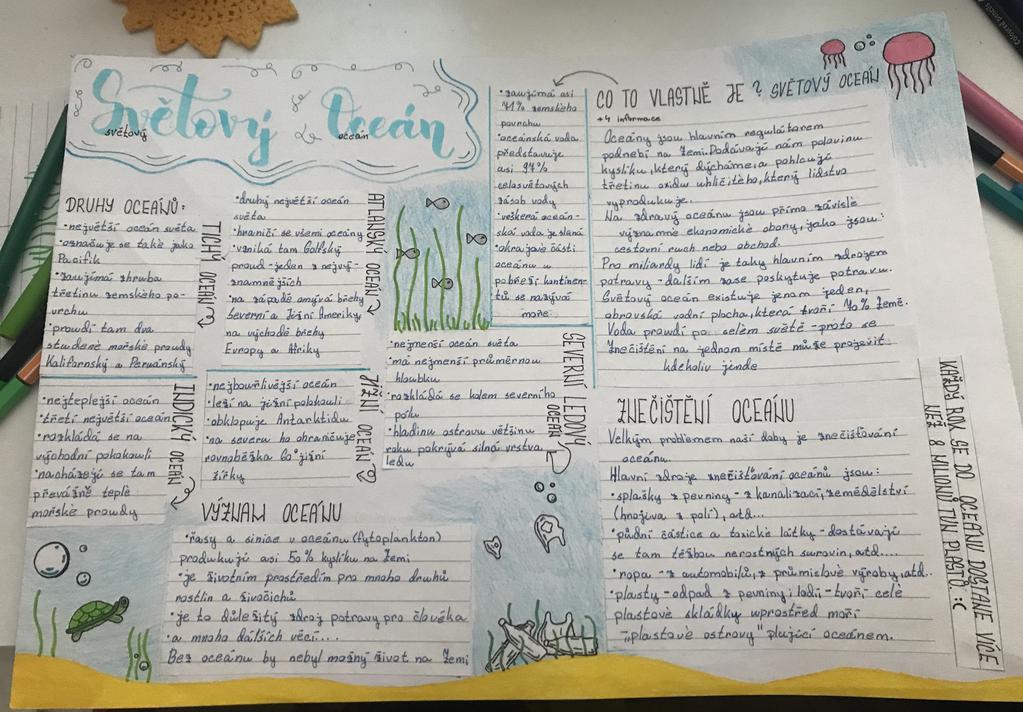 Světový Oceán
světový oceán
DRUHY OCEÁNŮ:
•největší oceán světa
•označuje se také jako
Pacifik
•zaujímá zhruba
třetinu zemského po-
vrchu
•proudí tam dva
studené mořské proudy
Kalifornský a Peruánský
TICHÝ OCEÁN
•druhý největší oceán
světa
•hraničí se všemi oceány
•vzniká tam Golfský
proud-jeden z nejvý-
znamnějších
•na západě omývá břehy
Severní a Jižní Ameriky,
na východě břehy
Evropy a Afriky
ATLANSKÝ OCEÁN
•nejteplejší oceán
•třetí největší oceán
•rozkládá se na
východní polokouli
•nacházejí se tam
převážně teplé
mořské proudy
INDICKÝ OCEÁN
•nejbouřlivější oceán
•leží na jižní polokouli
•obklopuje Antarktidu
•na severu ho ohraničuje
rovnoběžka 60° jižní
šířky
JIŽNÍ OCEÁN
•nejmenší oceán světa
•má nejmenší průměrnou
hloubku
•rozkládá se kolem severního
pólu
•hladinu ostrovu většinu
roku pokrývá silná vrstva
ledu
SEVERNÍ LEDOVÝ
OCEÁN
VÝZNAM OCEÁNU
•řasy a sinice v oceánu (fytoplankton)
produkují asi 50% kyslíku na Zemi
•je životním prostředím pro mnoho druhů
rostlin a živočichů
•je to důležitý zdroj potravy pro člověka
•a mnoho dalších věcí...
Bez oceánu by nebyl možný život na Zemi
•zaujímá asi
71% zemského
povrchu
•oceánská voda
představuje
asi 97%
celosvětových
zásob vody
•veškerá oceán-
ská voda je slaná
•okrajové části
oceánu u
pobřeží kontinen-
tů se nazývají
moře.
CO TO VLASTNĚ JE ? SVĚTOVÝ OCEÁN
+4 informace
Oceány jsou hlavním regulátorem
podnebí na Zemi.Dodávají nám polovinu
kyslíku,který dýcháme,a pohlcují
třetinu oxidu uhličitého,který lidstvo
vyprodukuje.
Na zdravý oceánu jsou přímo závislé
významné ekonomické obory,jako jsou:
cestovní ruch nebo obchod.
Pro miliardy lidí je taky hlavním zdrojem
potravy-dalším zase poskytuje potravu.
Světový oceán existuje jenom jeden,
obrovská vodní plocha,která tvoří 70% Země.
Voda proudí po celém světě-proto se
znečištění na jednom místě může projevit
kdekoliv jinde
ZNEČIŠTĚNÍ OCEÁNU
Velkým problémem naší doby je znečišťování
oceánu.
Hlavní zdroje znečišťování oceánů jsou:
•splašky z pevniny-z kanalizací,zemědělství
(hnojiva z polí),atd...
•půdní částice a toxické látky-dostávají
se tam těžbou nerostných surovin,atd....
•ropa-z automobilů,z průmyslové výroby,atd..
•plasty-odpad z pevniny i lodí-tvoří celé
plastové skládky uprostřed moří
-„plastové ostrovy" plující oceánem.
KAŽDÝ ROK SE DO OCEÁNU DOSTANE VÍCE
NEŽ 8 MILIONŮ TUN PLASTŮ. :(